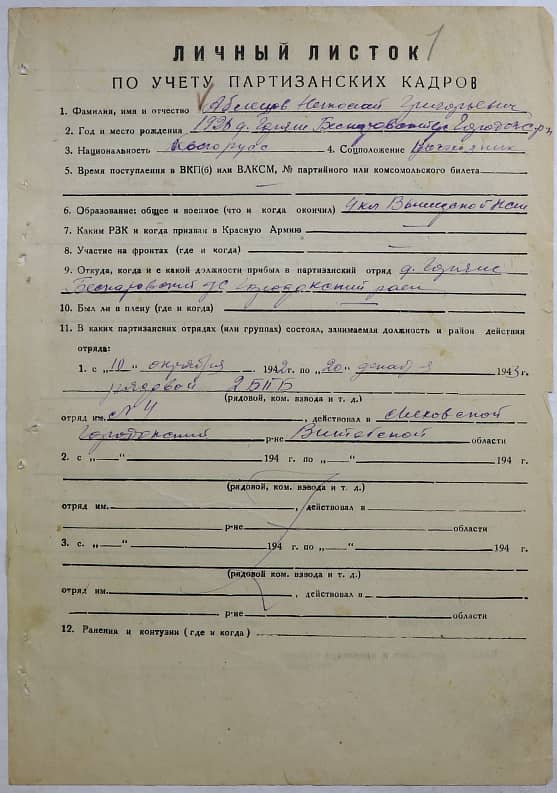 ЛИЧНЫЙ ЛИСТОК 1
ПО УЧЕТУ ПАРТИЗАНСКИХ КАДРОВ
1. Фамилия, имя и отчество Николай Григорьевич
2. Год и место рождения д.
3. Национальность белорусс 4. Соцположение
5. Время поступления в ВКП(б) или ВЛКСМ, № партийного или комсомольского билета
6. Образование: общее и военное (что и когда окончил) 4 кл
7. Каким РЗК и когда призван в Красную Армию —
8. Участие на фронтах (где и когда) —
9. Откуда, когда и с какой должности прибыл в партизанский отряд д.
с/с Городокский район
10. Был ли в плену (где и когда) —
11. В каких партизанских отрядах (или группах) состоял, занимаемая должность и район действия
отряда:
1. с „10" октября 1942 г. по „20" декабря 1943 г.
рядовой 2 БПБ
(рядовой, ком. взвода и т. д.)
отряд им. № 4, действовал в
Городокский р-не Витебской области
2. с „—" 194 г. по „—" 194 г.
(рядовой, ком. взвода и т. д.)
отряд им., действовал в
р-не области
3. с. „—" 194 г. по „—" 194 г.
(рядовой ком. взвода и т. д.)
отряд им., действовал в
р-не области
12. Ранения и контузии (где и когда)